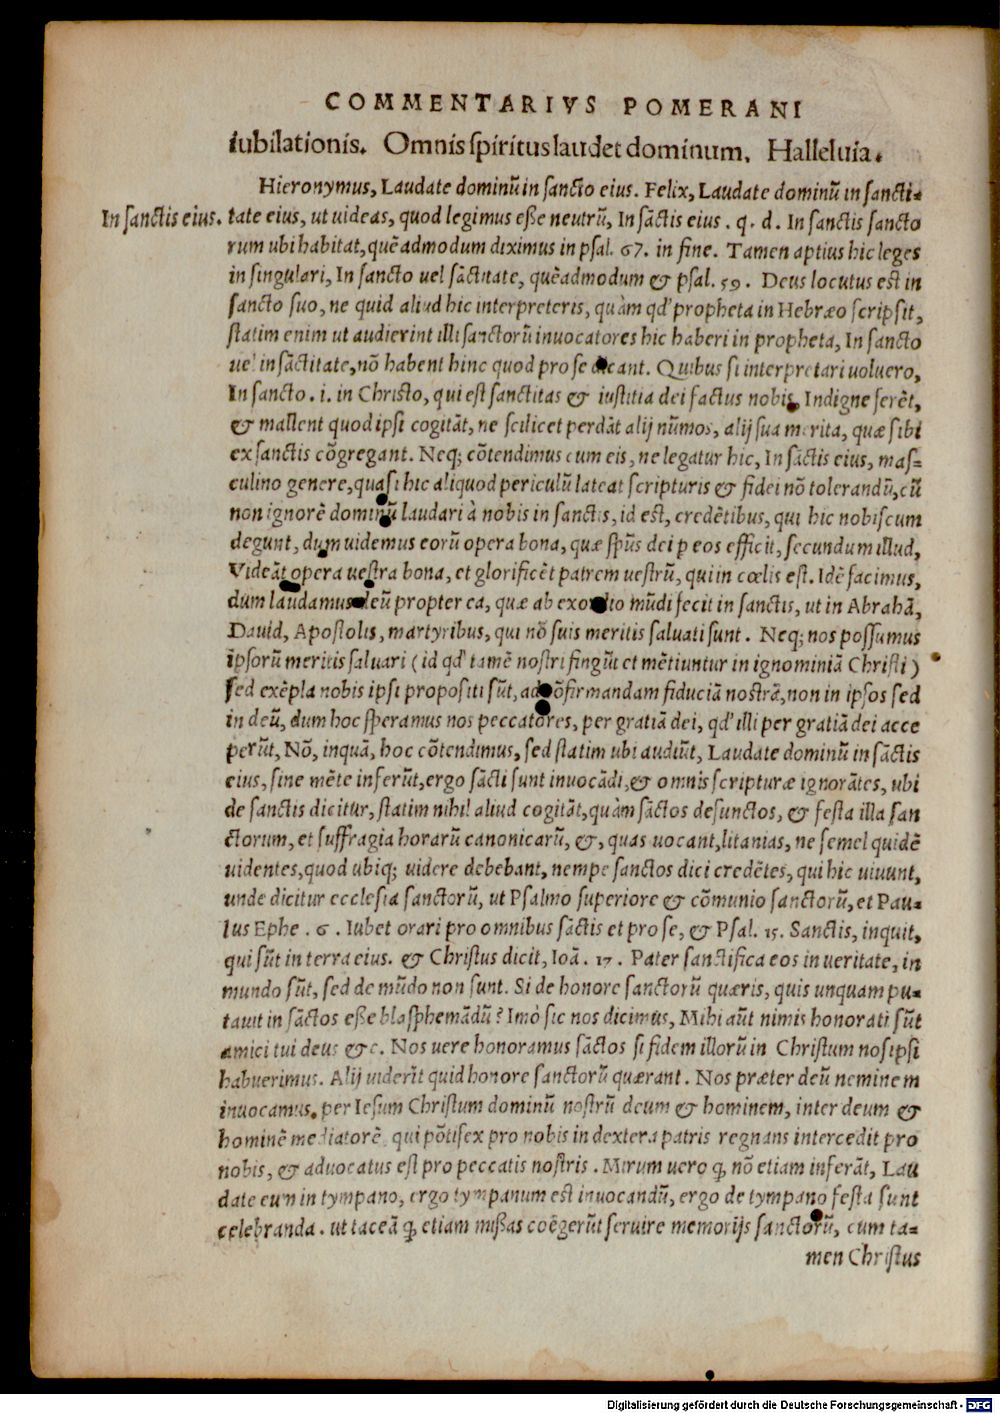 COMMENTARIVS POMERANI
iubilationis. Omnis spiritus laudet dominum. Halleluia.
Hieronymus, Laudate dominū in sancto eius. Felix, Laudate dominū in sancti-
In sanctis eius. tate eius, ut uideas, quod legimus eße neutrū, In sāctis eius . q. d. In sanctis sancto
rum ubi habitat, quēadmodum diximus in psal. 67. in fine. Tamen aptius hic leges
in singulari, In sancto uel sāctitate, quēadmodum & psal. 59. Deus locutus est in
sancto suo, ne quid aliud hic interpreteris, quàm qd' propheta in Hebræo scripsit,
statim enim ut audierint illi sanctorū inuocatores hic haberi in propheta, In sancto
uel in sāctitate, nō habent hinc quod pro se dicant. Quibus si interpretari uoluero,
In sancto .i. in Christo, qui est sanctitas & iustitia dei factus nobis, Indigne ferēt,
& mallent quod ipsi cogitāt, ne scilicet perdāt alij nūmos, alij sua merita, quæ sibi
ex sanctis cōgregant. Neq; cōtendimus cum eis, ne legatur hic, In sāctis eius, mas-
culino genere, quasi hic aliquod periculū lateat scripturis & fidei nō tolerandū, cū
non ignorē dominū laudari à nobis in sanctis, id est, credētibus, qui hic nobiscum
degunt, dum uidemus eorū opera bona, quæ sp̄us dei p eos efficit, secundum illud,
Videāt opera uestra bona, et glorificēt patrem uestrū, qui in cœlis est. Idē facimus,
dum laudamus deū propter ea, quæ ab exordio mūdi fecit in sanctis, ut in Abrahā,
Dauid, Apostolis, martyribus, qui nō suis meritis saluati sunt. Neq; nos possumus
ipsorū meritis saluari (id qd' tamē nostri fingūt et mētiuntur in ignominiā Christi)
sed exēpla nobis ipsi propositi sūt, ad cōfirmandam fiduciā nostrā, non in ipsos sed
in deū, dum hoc speramus nos peccatores, per gratiā dei, qd' illi per gratiā dei acce
perūt, Nō, inquā, hoc cōtendimus, sed statim ubi audiūt, Laudate dominū in sāctis
eius, sine mēte inferūt, ergo sācti sunt inuocādi, & omnis scripturæ ignorātes, ubi
de sanctis dicitur, statim nihil aliud cogitāt, quàm sāctos defunctos, & festa illa san
ctorum, et suffragia horarū canonicarū, &, quas uocant, litanias, ne semel quidē
uidentes, quod ubiq; uidere debebant, nempe sanctos dici credētes, qui hic uiuunt,
unde dicitur ecclesia sanctorū, ut Psalmo superiore & cōmunio sanctorū, et Pau-
lus Ephe . 6 . Iubet orari pro omnibus sāctis et pro se, & Psal. 15. Sanctis, inquit,
qui sūt in terra eius. & Christus dicit, Ioā . 17 . Pater sanctifica eos in ueritate, in
mundo sūt, sed de mūdo non sunt. Si de honore sanctorū quæris, quis unquam pu-
tauit in sāctos eße blasphemādū? Imò sic nos dicimus, Mihi aūt nimis honorati sūt
amici tui deus &c. Nos uere honoramus sāctos si fidem illorū in Christum nos ipsi
habuerimus. Alij uiderīt quid honore sanctorū quærant. Nos præter deū neminem
inuocamus, per Iesum Christum dominū nostrū deum & hominem, inter deum &
hominē mediatorē qui pōtifex pro nobis in dextera patris regnans intercedit pro
nobis, & aduocatus est pro peccatis nostris. Mirum uero q̄, nō etiam inferāt, Lau
date eum in tympano, ergo tympanum est inuocandū, ergo de tympano festa sunt
celebranda. ut taceā q̄, etiam mißas coēgerūt seruire memorijs sanctorū, cum ta-
men Christus
Digitalisierung gefördert durch die Deutsche Forschungsgemeinschaft - DFG